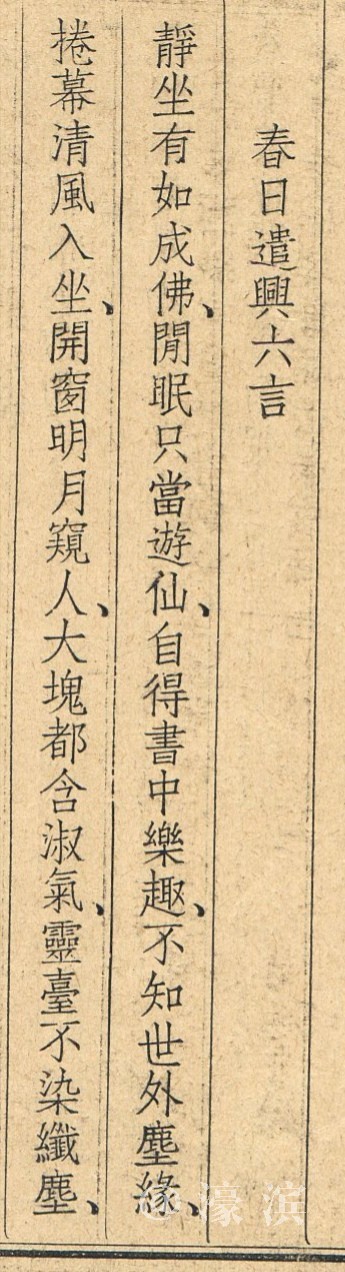 春日遣興六言
靜坐有如成佛、閒眠只當遊仙、自得書中樂趣、不知世外塵緣、
捲幕清風入坐、開窗明月窺人、大塊都含淑氣、靈臺不染纖塵、
濠滨